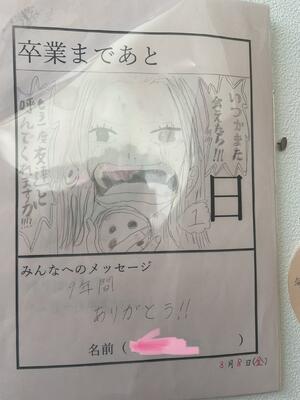 卒業まであと
いつかまた
会えたら!!!
もう一度友達と
呼んでくれますか!!!
1
日
みんなへのメッセージ
9年間
ありがとう!!
名前（　　　　）
3月8日(金)